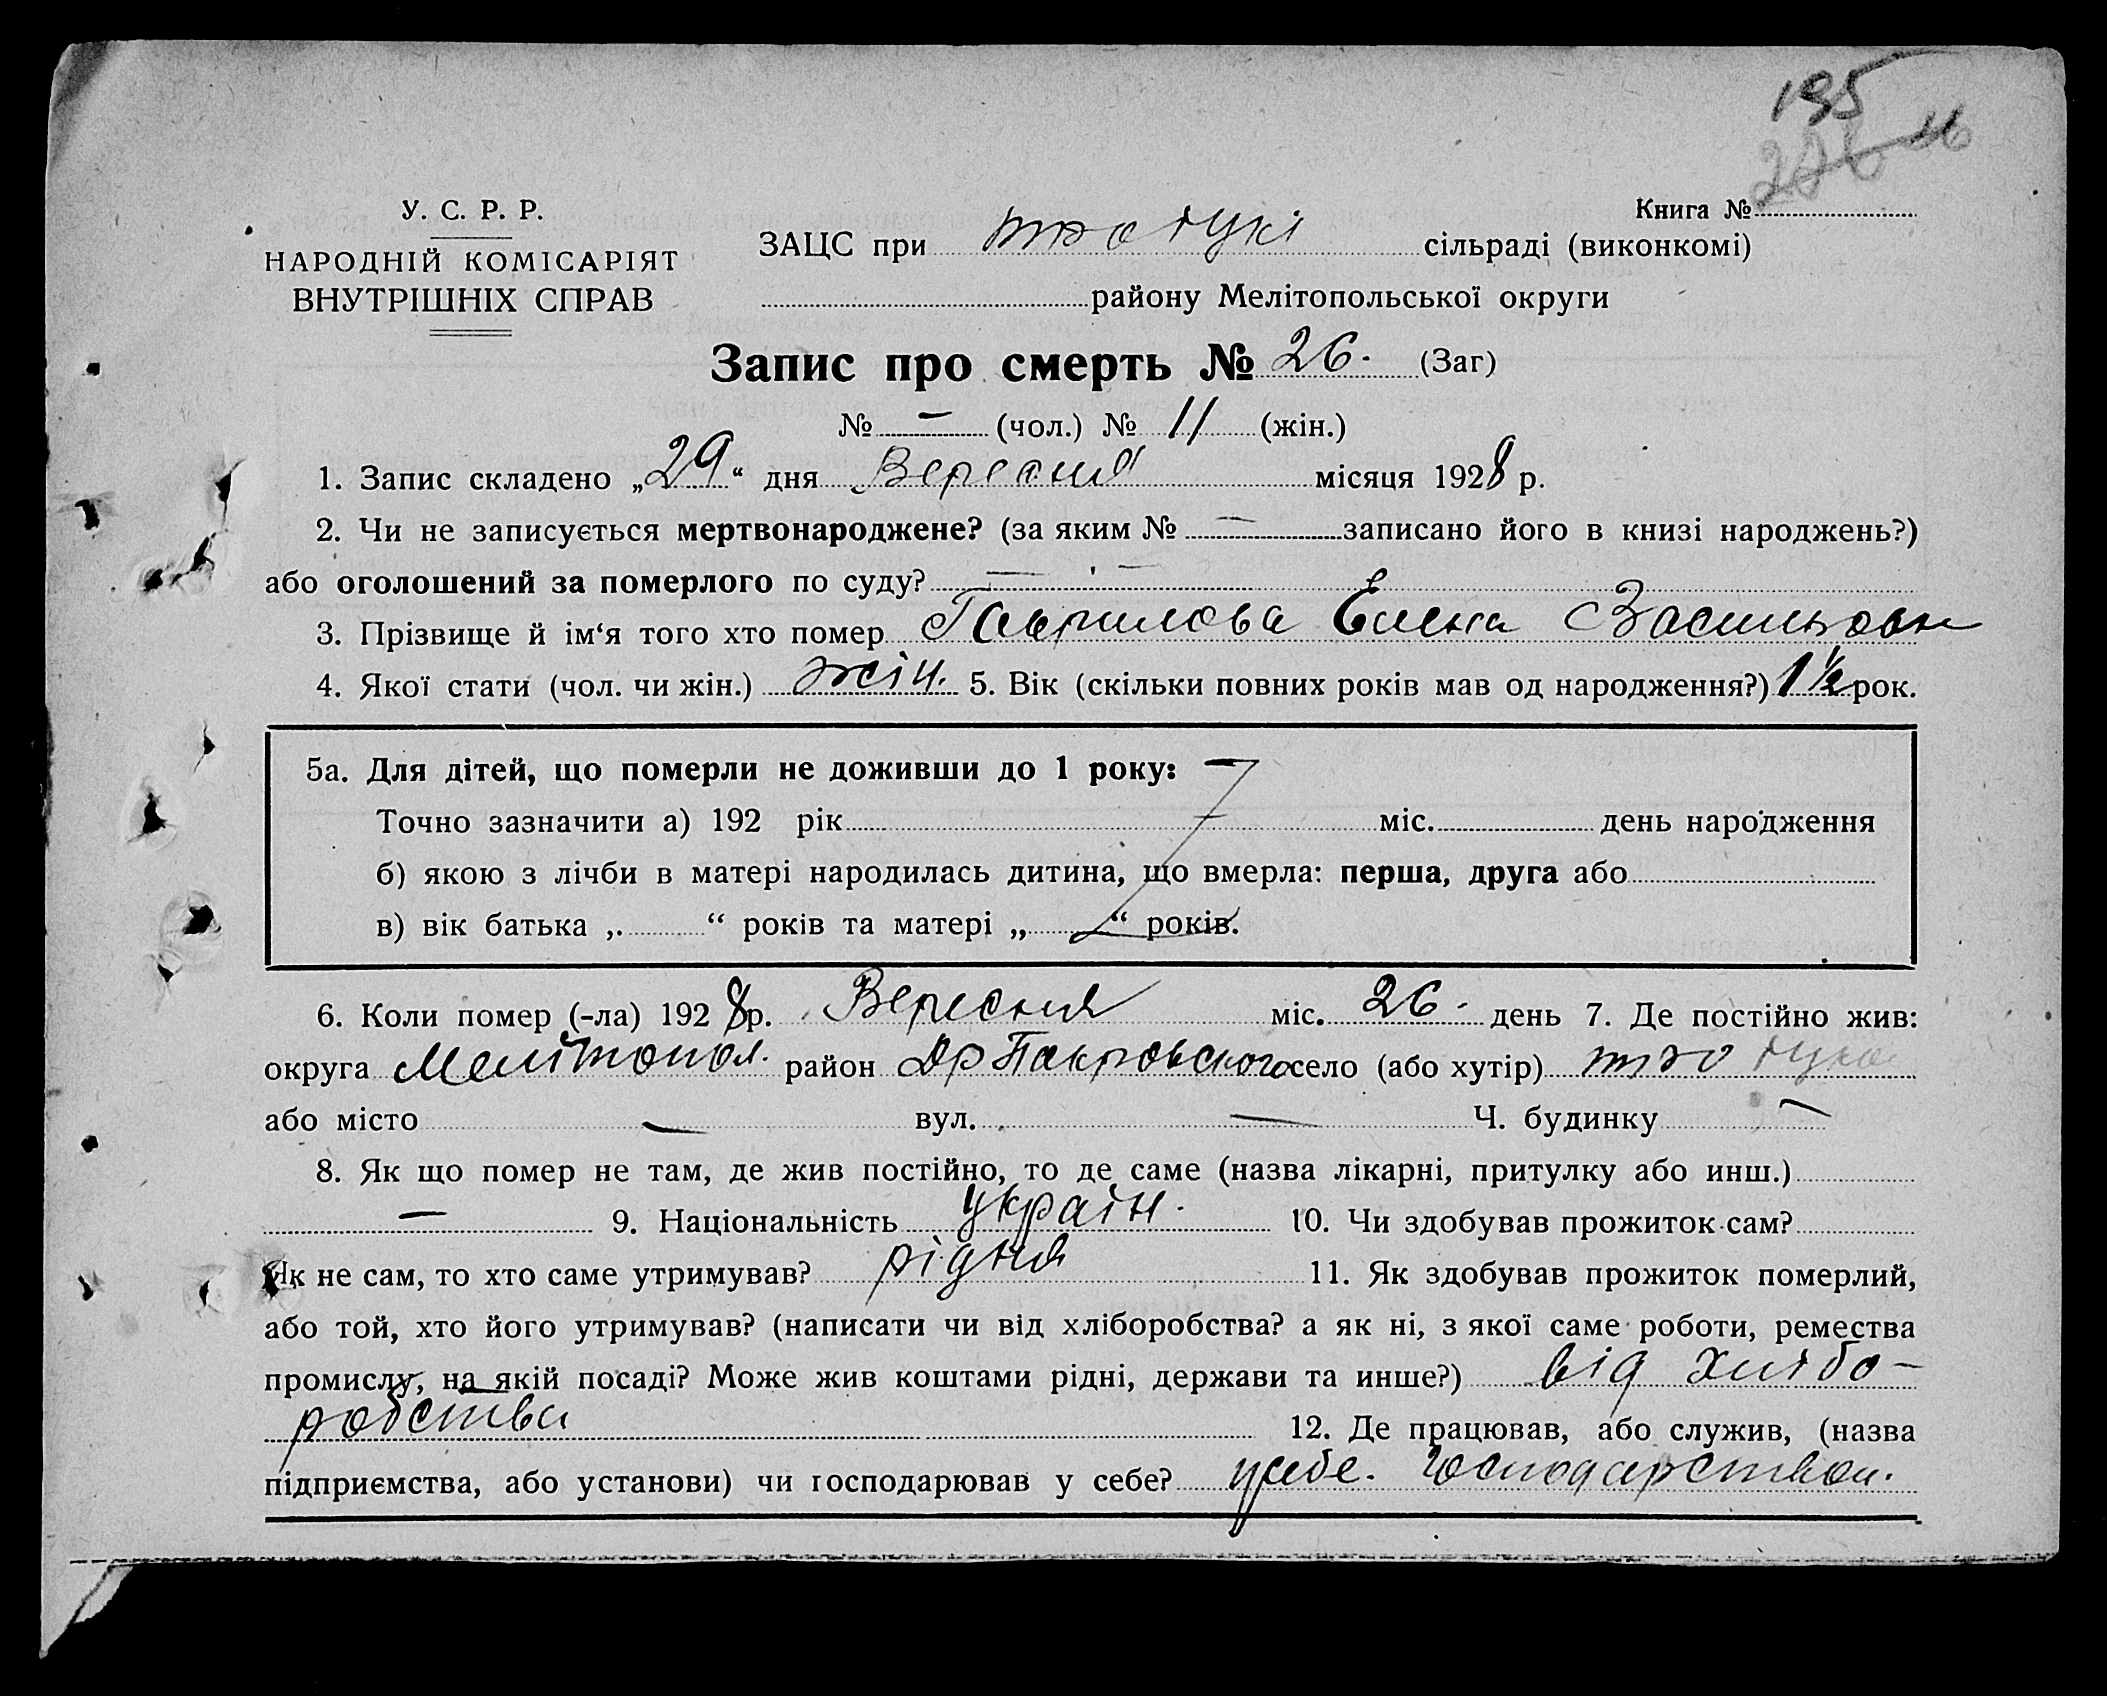 195
У. С. Р. Р.
НАРОДНІЙ КОМІСАРІЯТ
ВНУТРІШНІХ СПРАВ
Книга №
ЗАЦС при сільраді (виконкомі)
району Мелітопольської округи
Запис про смерть № 26. (Заг)
№ — (чол.) № 11 (жін.)
1. Запис складено „29“ дня Вересня місяця 1928 р.
2. Чи не записується мертвонароджене? (за яким № — записано його в книзі народжень?)
або оголошений за померлого по суду? — —
3. Прізвище й ім‘я того хто помер Гаврилова Елена
4. Якої стати (чол. чи жін.) жін. 5. Вік (скільки повних років мав од народження?) 1 ½ рок.
5а. Для дітей, що померли не доживши до 1 року: —
Точно зазначити а) 192 рік міс. день народження
б) якою з лічби в матері народилась дитина, що вмерла: перша, друга або
в) вік батька „ “ років та матері „ “ років.
6. Коли помер (-ла) 1928р. Вересня міс. 26. день 7. Де постійно жив:
округа Мелітопол. район село (або хутір)
або місто — вул. — Ч. будинку —
8. Як що помер не там, де жив постійно, то де саме (назва лікарні, притулку або инш.)
— 9. Національність україн. 10. Чи здобував прожиток сам?
Як не сам, то хто саме утримував? рідня 11. Як здобував прожиток померлий,
або той, хто його утримував? (написати чи від хліборобства? а як ні, з якої саме роботи, ремества
промислу, на якій посаді? Може жив коштами рідні, держави та инше?) від хлібо-
робства 12. Де працював, або служив, (назва
підприємства, або установи) чи господарював у себе? усебе.